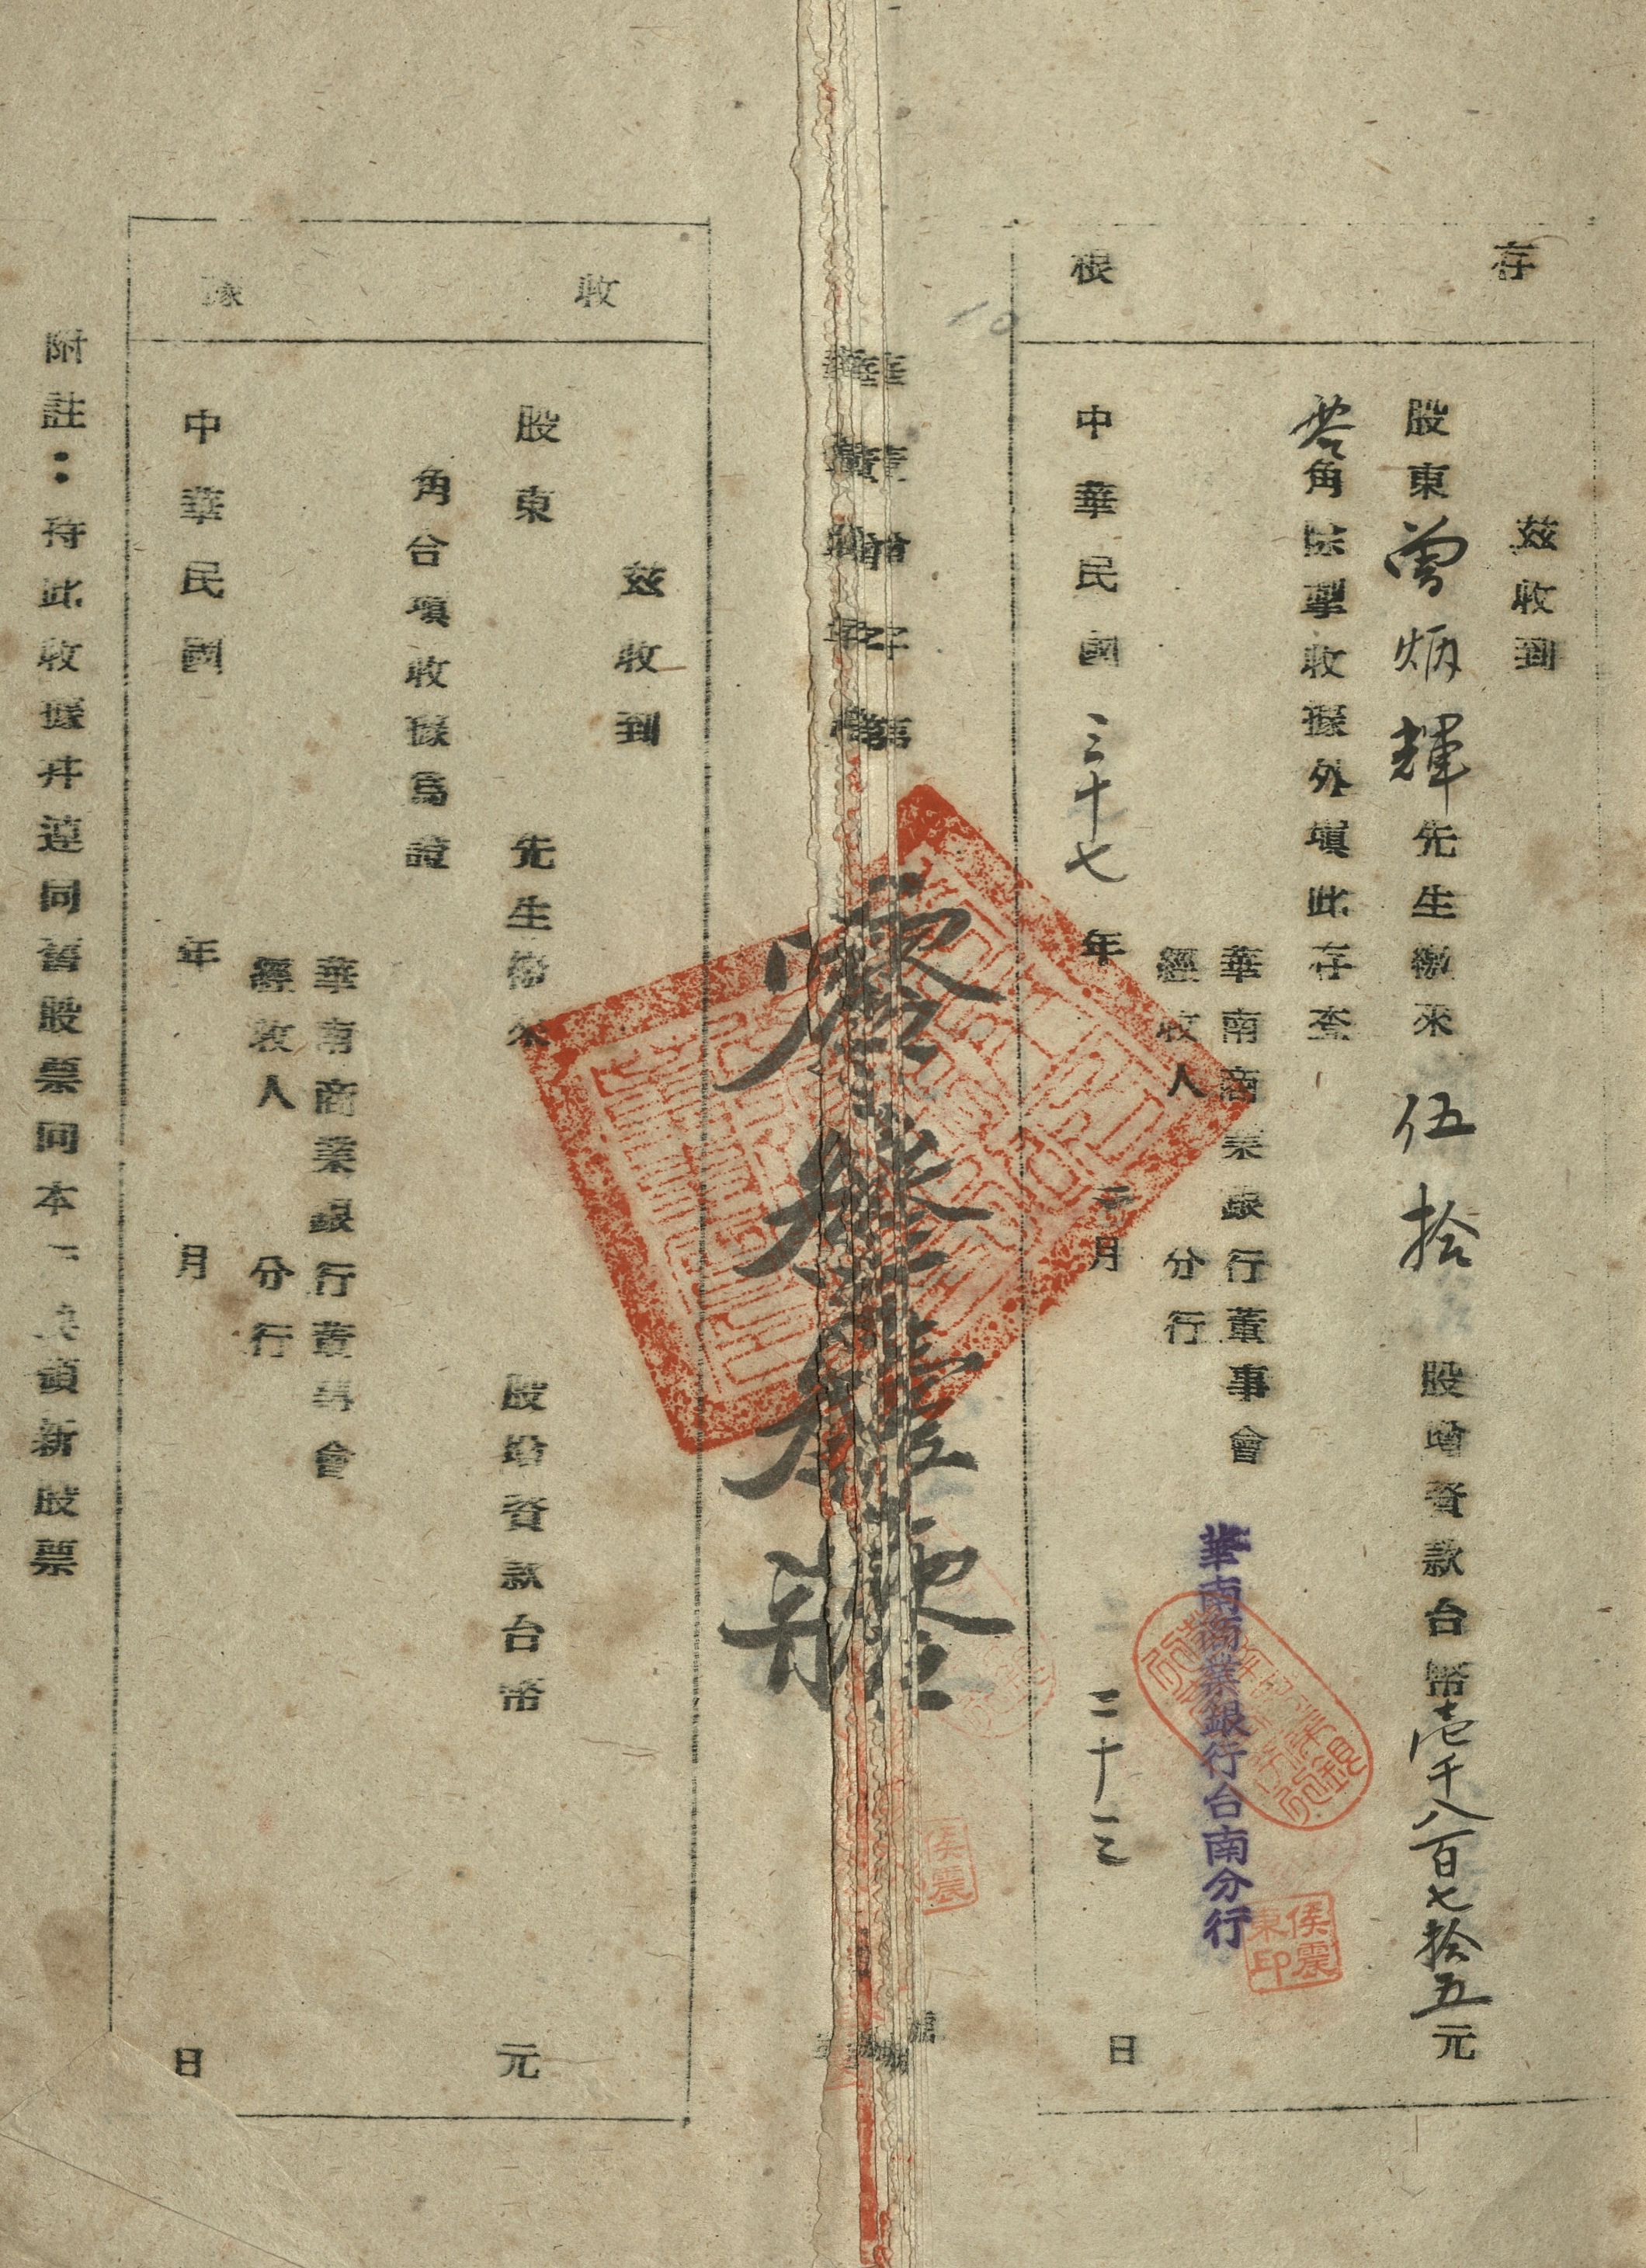 存根
茲收到
股東曾炳輝先生繳來伍拾股增資款台幣壱千八百七拾五元
角除掣收據外填此存查
華南商業銀行董事會
經收人 分行
華南商業銀行台南分行
侯震東印
中華民國三十七年二月二十三日
收據
茲收到
股東 先生繳來 股增資款台幣 元
角合填收據為證
華南商業銀行董事會
經收人 分行
中華民國 年 月 日
附註：持此收據并連同舊股票向本行換領新股票